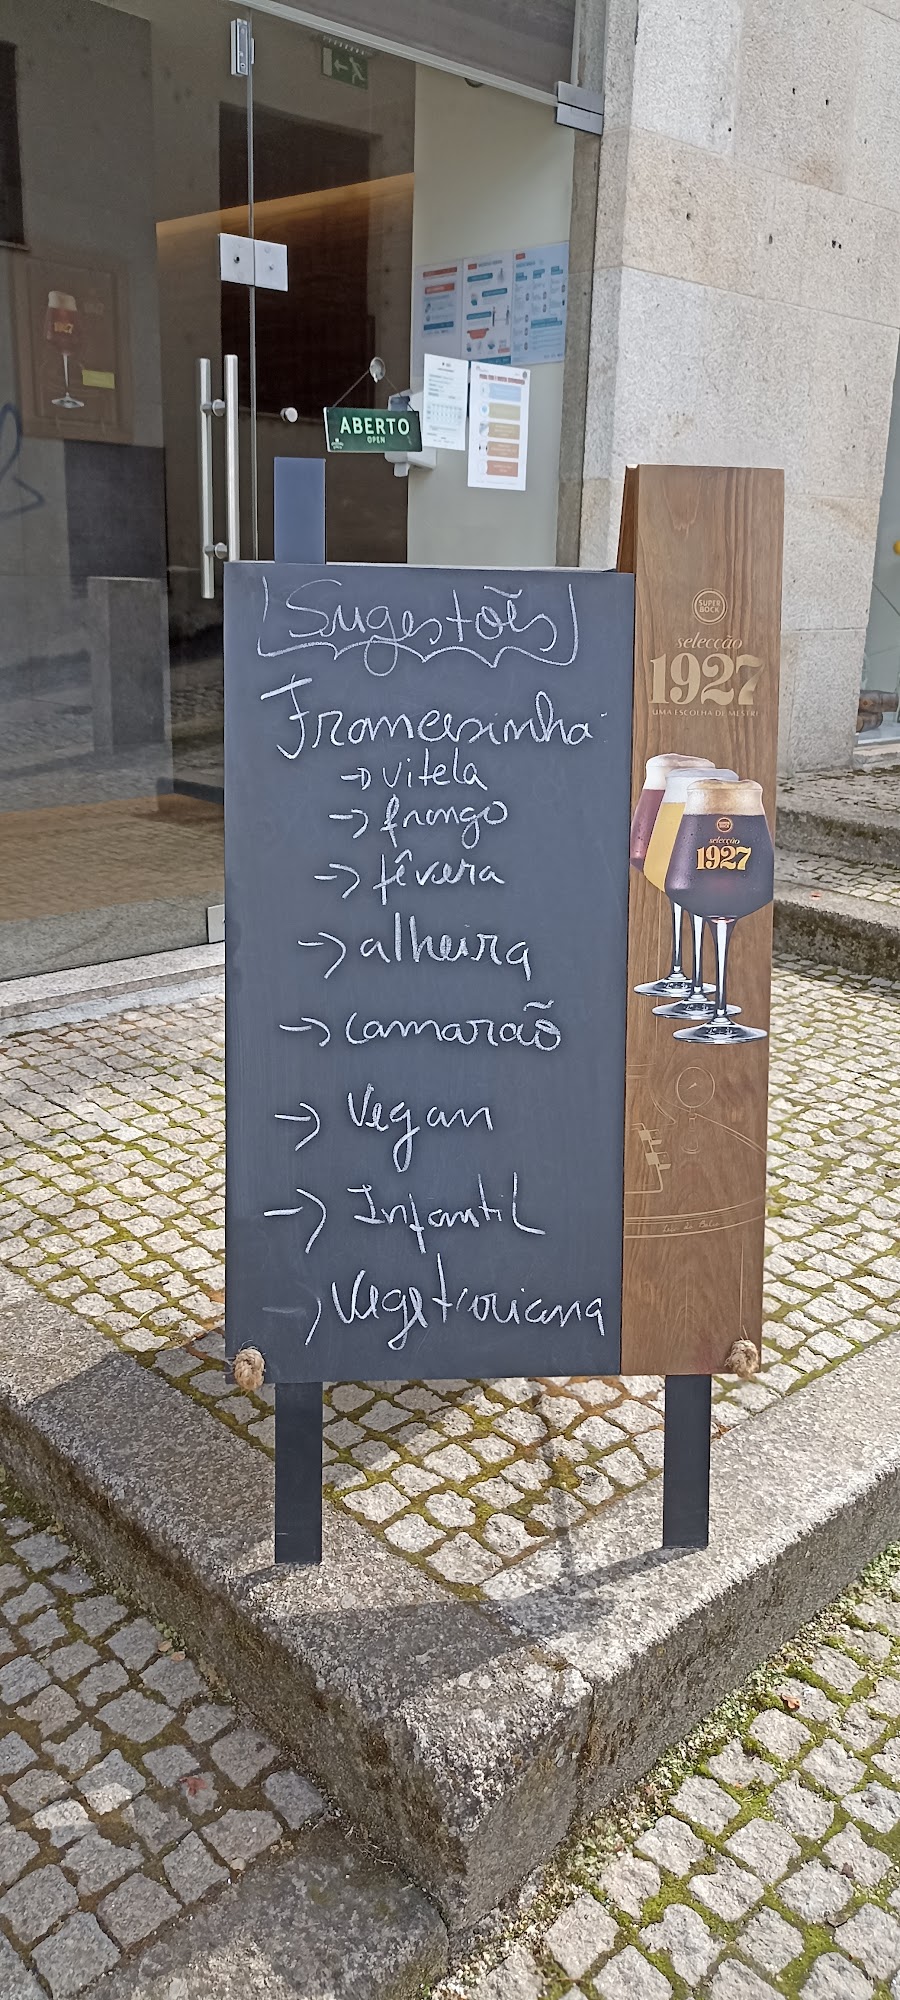 ABERTO
OPEN
Sugestões
Francesinha:
→ vitela
→ frango
→ fêvera
→ alheira
→ camarão
→ Vegan
→ Infantil
→ Vegetariana
SUPER
BOCK
selecção
1927
UMA ESCOLHA DE MESTRE
SUPER
BOCK
selecção
1927
1927